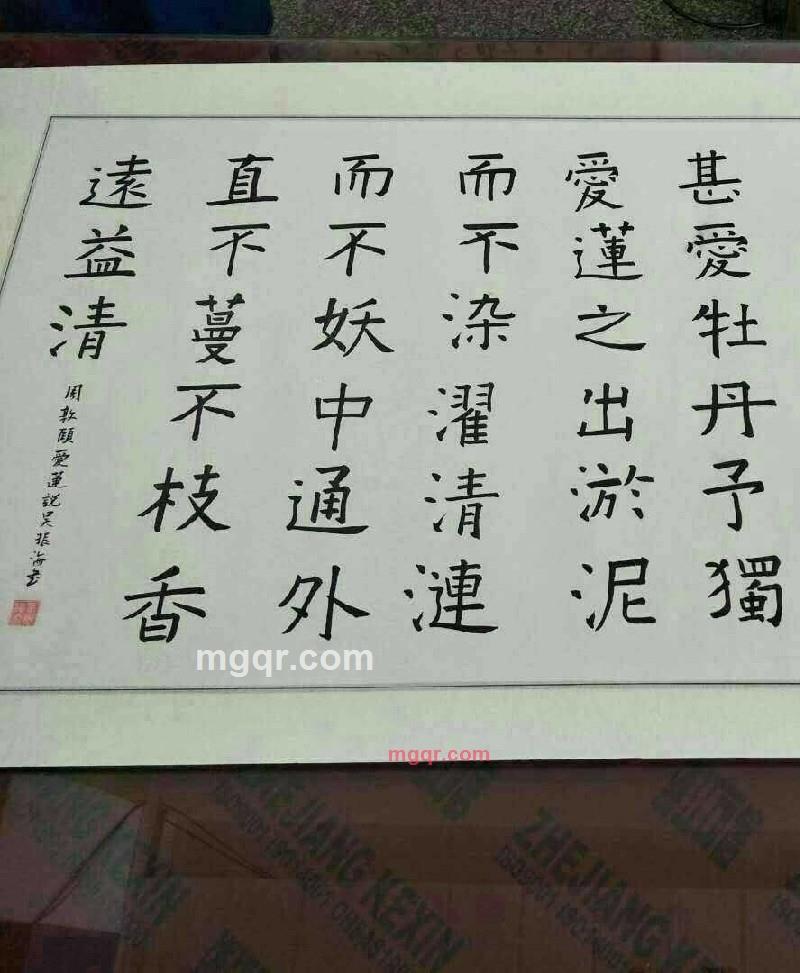 甚愛牡丹予獨
愛蓮之出淤泥
而不染濯清漣
而不妖中通外
直不蔓不枝香
遠益清
周敦頤愛蓮說吴振海书
mgqr.com
mgqr.com
ZHEJIANG KEXIN
ZHEJIANG KEXIN